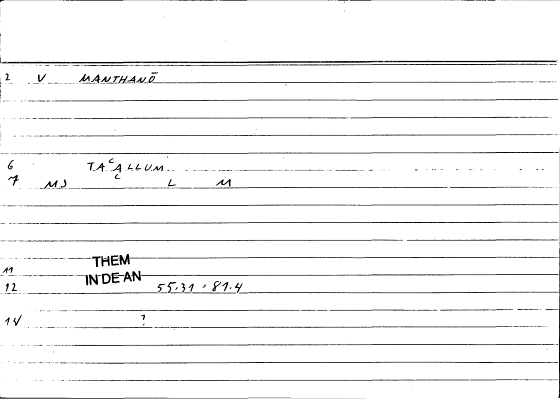 2 V MANTHANŌ
6 TACALLUM
7 MS L M
11 THEM
12 IN DE AN 55.31 · 81.4
14 ?